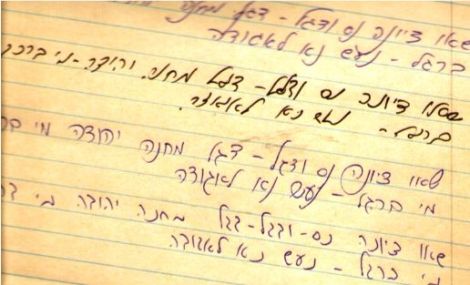 שאו ציונה נס ודגל - דגל מחנה
ברגל - נעש נא לאגודה
שאו ציונה נס ודגל - דגל מחנה יהודה - מי ברכב
ברגל - נעש נא לאגודה.
שאו ציונה נס ודגל - דגל מחנה יהודה מי
מי ברגל - נעש נא לאגודה
שאו ציונה נס - ודגל - דגל מחנה יהודה מי
מי ברגל - נעש נא לאגודה